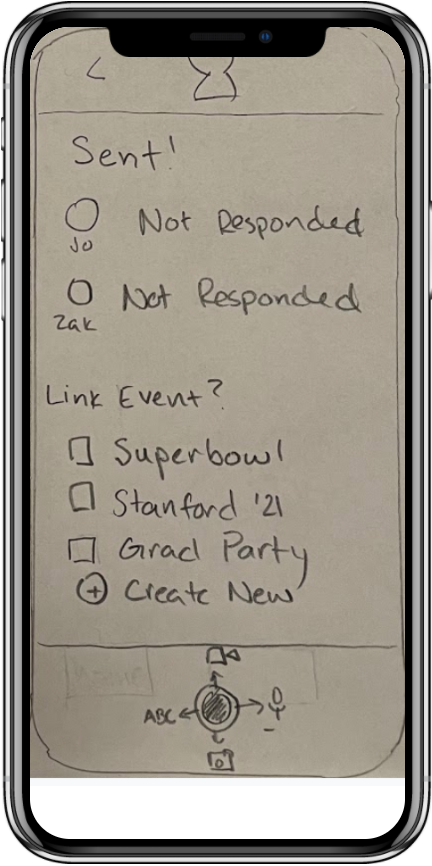 Sent!
Not Responded
Jo
Not Responded
Zak
Link Event?
Superbowl
Stanford '21
Grad Party
Create New
ABC